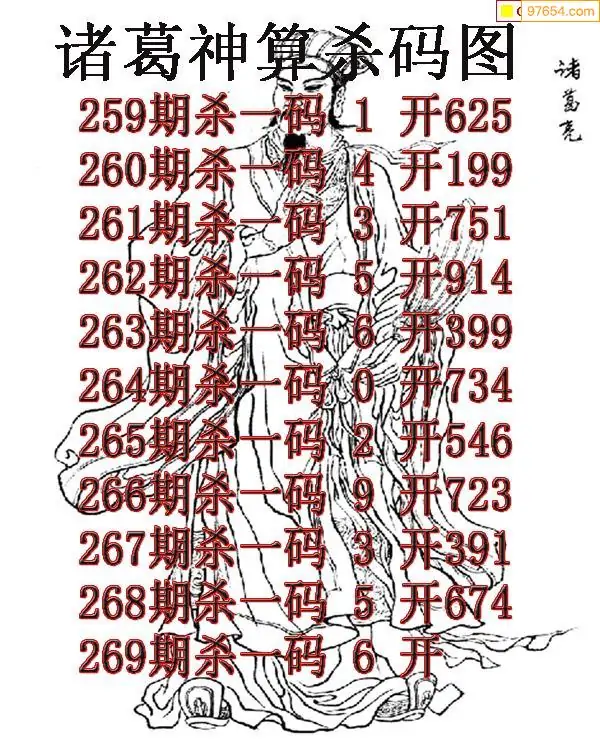 97654.com
诸葛神算杀码图
诸葛亮
259期杀一码 1 开625
260期杀一码 4 开199
261期杀一码 3 开751
262期杀一码 5 开914
263期杀一码 6 开399
264期杀一码 0 开734
265期杀一码 2 开546
266期杀一码 9 开723
267期杀一码 3 开391
268期杀一码 5 开674
269期杀一码 6 开